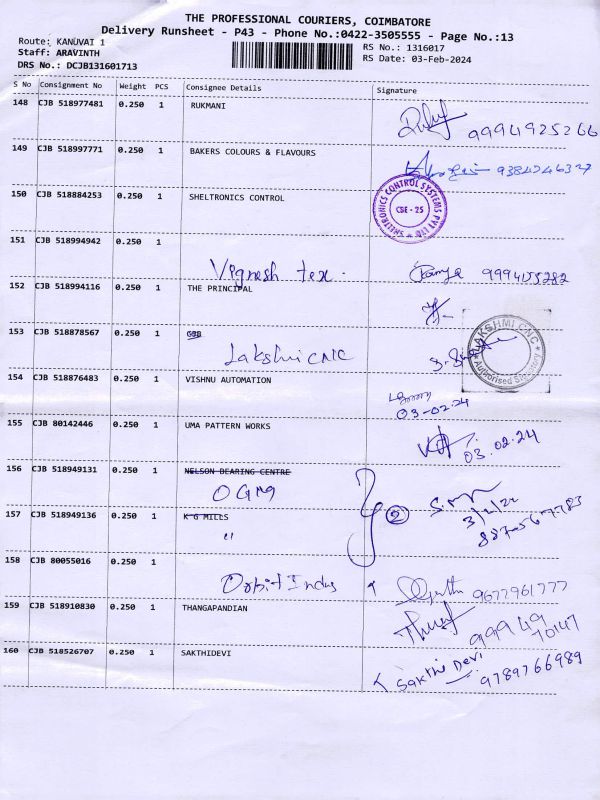 THE PROFESSIONAL COURIERS, COIMBATORE
Delivery Runsheet - P43 - Phone No.:0422-3505555 - Page No.:13
Route: KANUVAI 1
Staff: ARAVINTH
DRS No.: DCJB131601713
RS No.: 1316017
RS Date: 03-Feb-2024
S No Consignment No Weight PCS Consignee Details Signature
148 CJB 518977481 0.250 1 RUKMANI
9994925266
149 CJB 518997771 0.250 1 BAKERS COLOURS & FLAVOURS
9384246327
150 CJB 518884253 0.250 1 SHELTRONICS CONTROL
SHELTRONICS CONTROL SYSTEMS PVT LTD
CBE - 25
151 CJB 518994942 0.250 1
Vignesh tex.
9994155282
152 CJB 518994116 0.250 1 THE PRINCIPAL
153 CJB 518878567 0.250 1
Lakshmi CNC
LAKSHMI CNC
Authorised Signatory
154 CJB 518876483 0.250 1 VISHNU AUTOMATION
03-02-24
155 CJB 80142446 0.250 1 UMA PATTERN WORKS
03.02.24
156 CJB 518949131 0.250 1 NELSON BEARING CENTRE
2
157 CJB 518949136 0.250 1 K G MILLS
"
158 CJB 80055016 0.250 1
Orbit Indus
9677961777
159 CJB 518910830 0.250 1 THANGAPANDIAN
99949
70147
160 CJB 518526707 0.250 1 SAKTHIDEVI
Sakthi Devi
9789766989